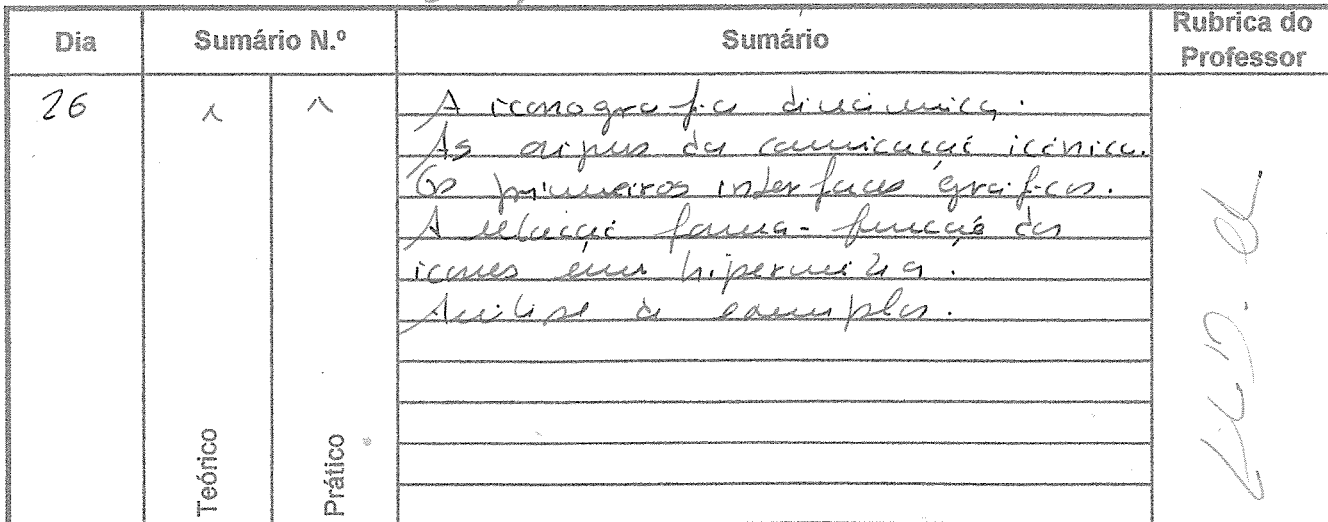 Dia Sumário N.º Sumário Rubrica do Professor
26 1 1
A iconografia dinâmica.
As origens da comunicação icónica.
Os primeiros interfaces gráficos.
A relação forma-função dos
icones em hipermédia.
Análise de exemplos.
Teórico
Prático